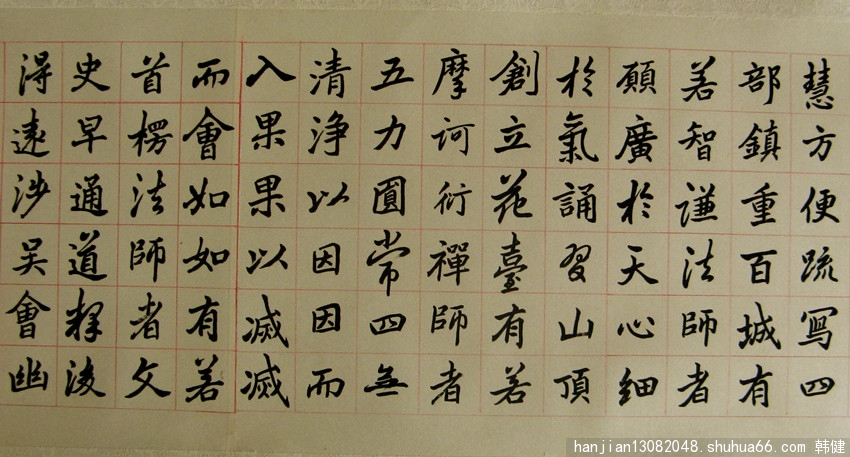 慧方便疏寫四
部鎮重百城有
若智謙法師者
願廣於天心細
於氣誦習山頂
創立花臺有若
摩訶衍禪師者
五力圓常四無
清浄以因因而
入果果以滅滅
而會如如有若
首楞法師者文
史早通道釋後
得遠涉吳會幽
hanjian13082048.shuhua66.com 韩健